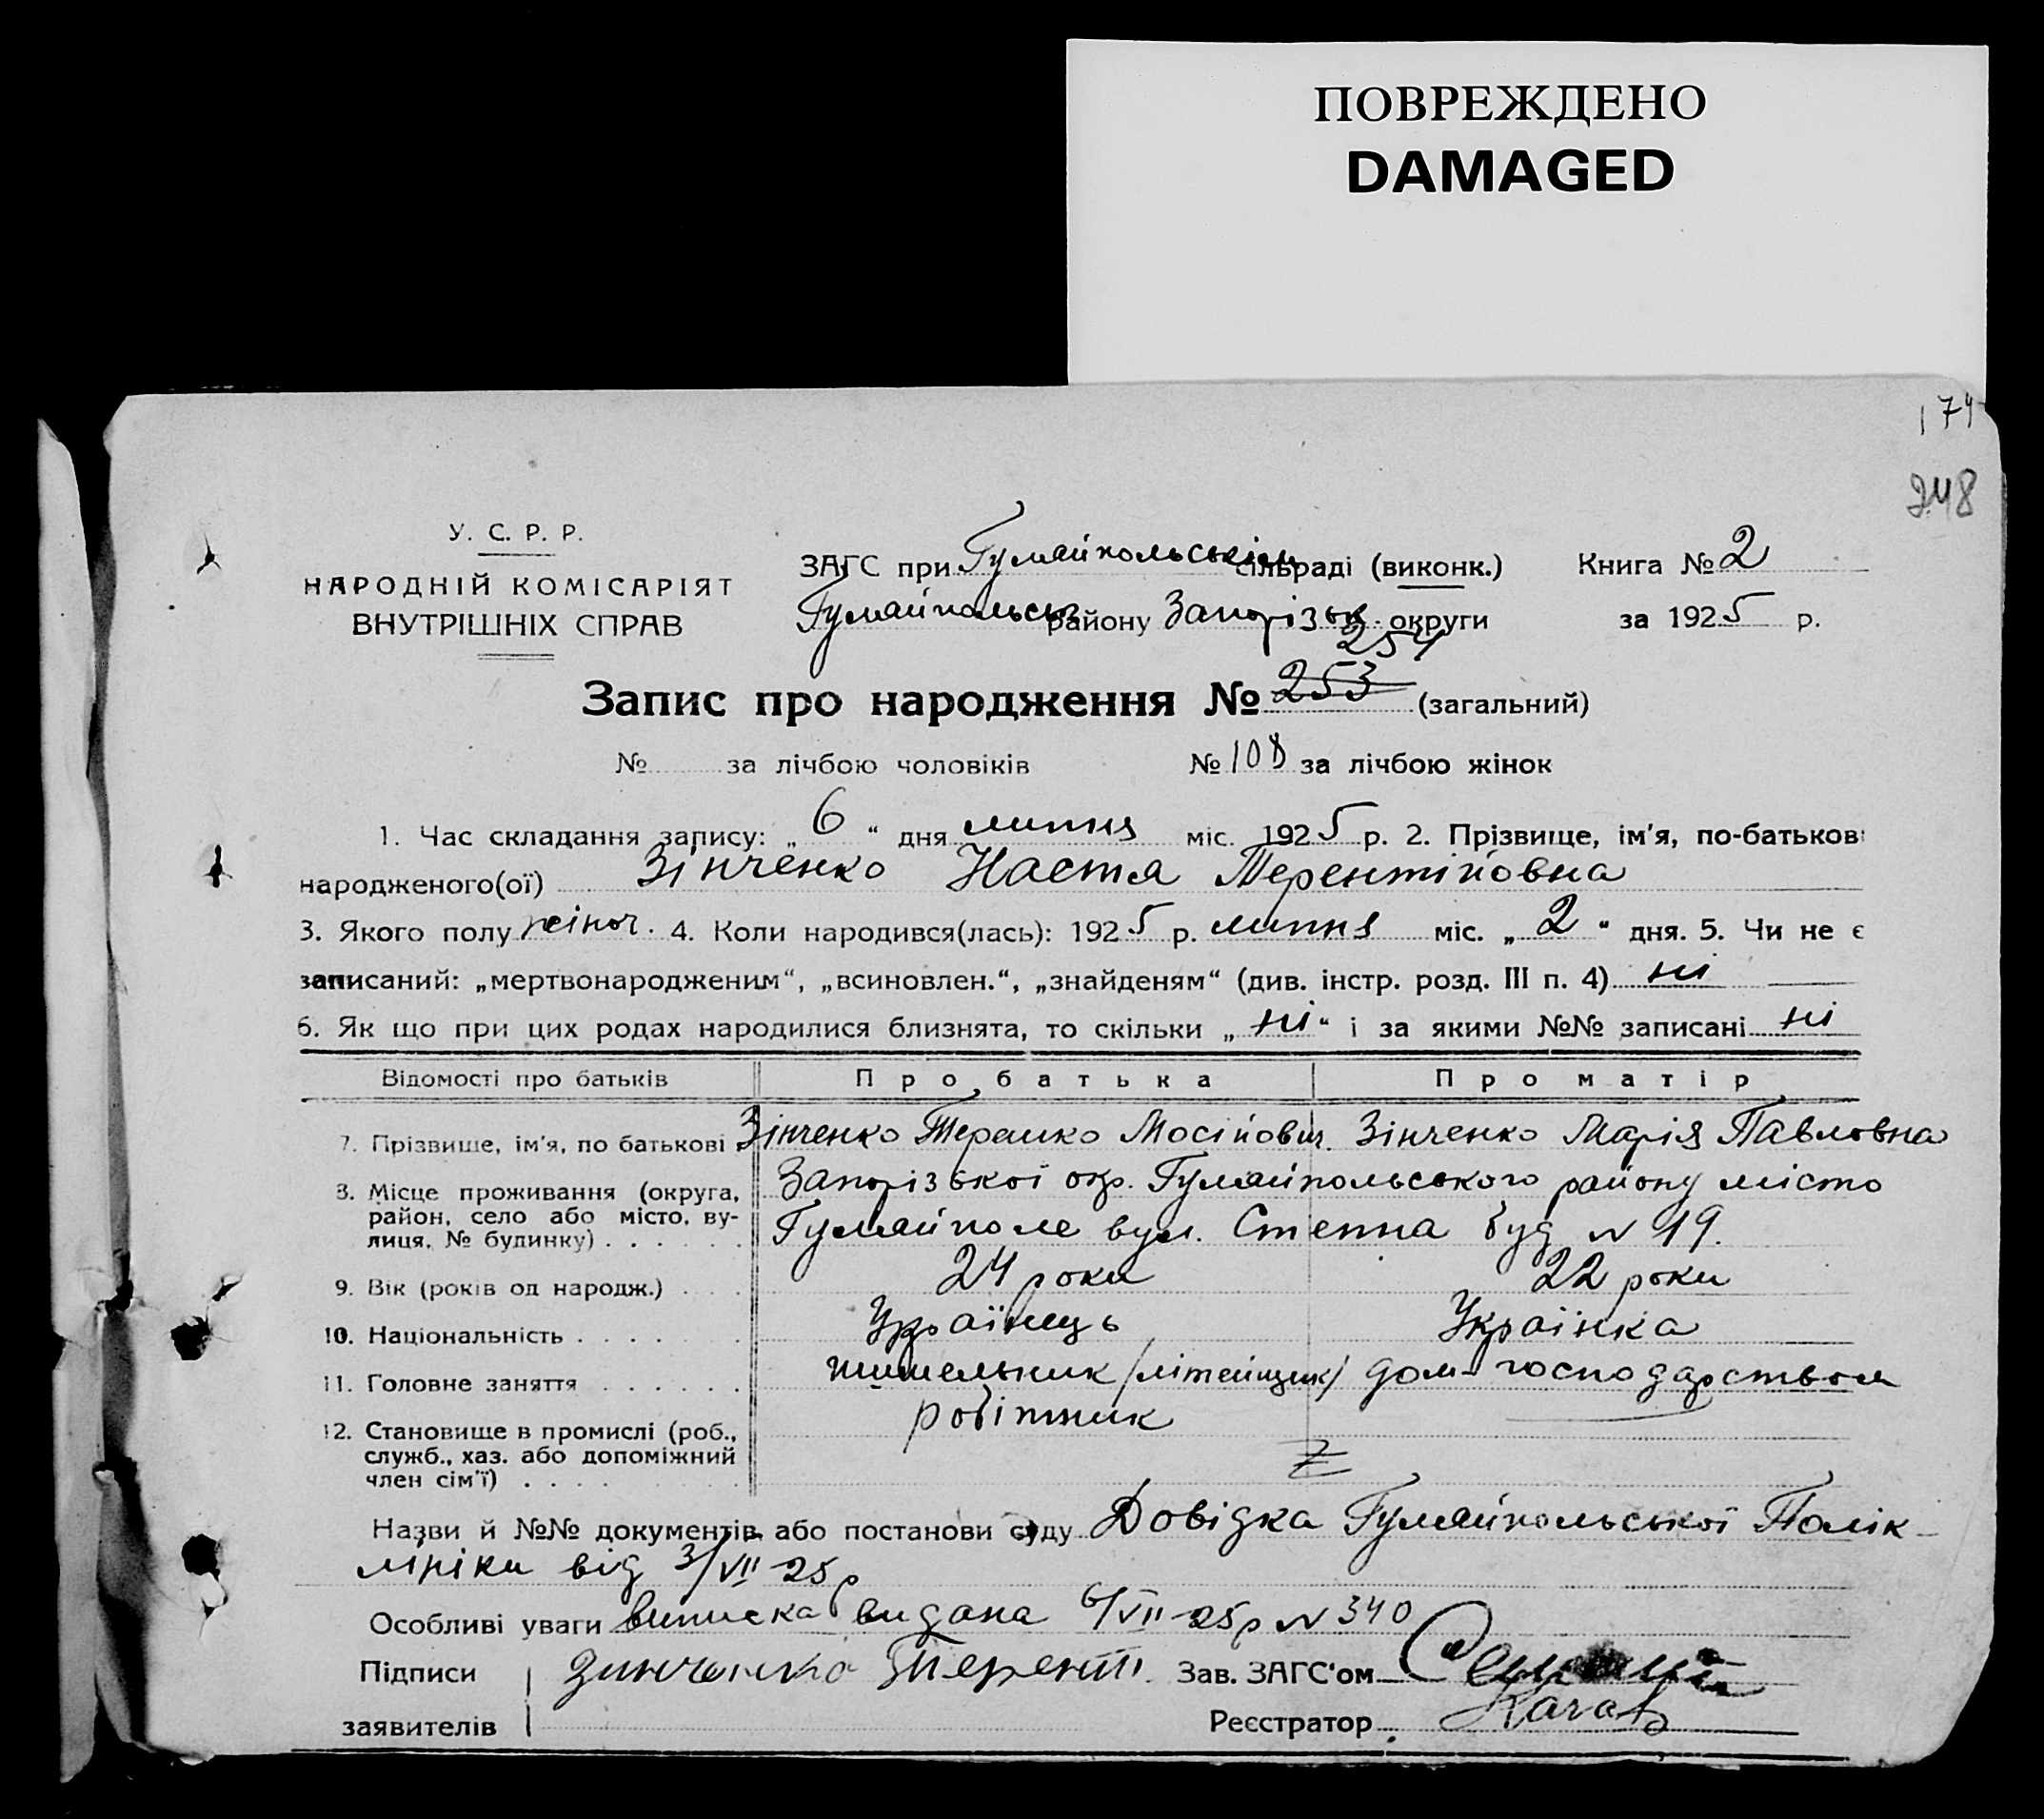 ПОВРЕЖДЕНО
DAMAGED
174
248
У. С. Р. Р.
НАРОДНІЙ КОМІСАРІЯТ
ВНУТРІШНІХ СПРАВ
ЗАГС при Гуляйпольськім сільраді (виконк.)
Гуляйпольськ району Запорізьк. округи
Книга № 2
за 1925 р.
254
Запис про народження № 253 (загальний)
№ за лічбою чоловіків № 108 за лічбою жінок
1. Час складання запису: „ 6 “ дня липня міс. 1925 р. 2. Прізвище, ім'я, по-батькові
народженого(ої) Зінченко Настя Терентійовна
3. Якого полу жіноч. 4. Коли народився(лась): 1925 р. липня міс. „ 2 “ дня. 5. Чи не є
записаний: „мертвонародженим“, „всиновлен.“, „знайденям“ (див. інстр. розд. III п. 4) ні
6. Як що при цих родах народилися близнята, то скільки „ ні “ і за якими №№ записані ні
Відомості про батьків Про батька Про матір
7. Прізвище, ім'я, по батькові Зінченко Терешко Мосійович. Зінченко Марія Павловна
8. Місце проживання (округа, Запорізької окр. Гуляйпольського району місто
район, село або місто, ву-
лиця, № будинку) . . . . . . Гуляйполе вул. Степна буд № 19.
9. Вік (років од народж.) . . . 24 роки 22 роки
10. Національність . . . . . Українець Українка
11. Головне заняття . . . . . . /літейщик/ дом-господарством
робітник
12. Становище в промислі (роб.,
служб., хаз. або допоміжний
член сім'ї) . . . .
Назви й №№ документів або постанови суду Довідка Гуляйпольської Полік-
лініки від 3/VII-25р
Особливі уваги виписка видана 6/VII-25р № 340
Підписи Зинченко Терентi Зав. ЗАГС'ом
заявителів Реєстратор